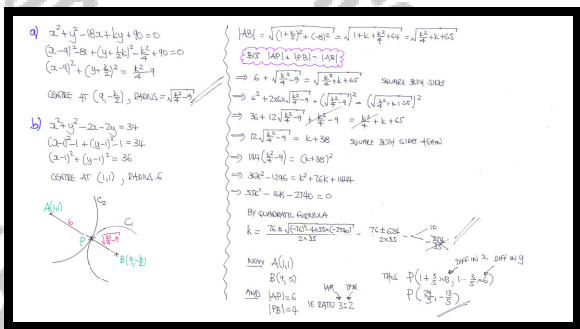 a) x²+y²-18x+ky+90=0
(x-9)²-81+(y+½k)²-k²/4+90=0
(x-9)²+(y+k/2)²=k²/4-9
CENTRE AT (9,-k/2), RADIUS=√(k²/4-9)
b) x²+y²-2x-2y=34
(x-1)²-1+(y-1)²-1=34
(x-1)²+(y-1)²=36
CENTRE AT (1,1), RADIUS 6
A(1,1)
C₂
6
C₁
P
√(k²/4-9)
B(9,-k/2)
|AB|=√((1+k/2)²+(-8)²)=√(1+k+k²/4+64)=√(k²/4+k+65)
BUT |AP|+|PB|=|AB|
⇒ 6+√(k²/4-9)=√(k²/4+k+65) SQUARE BOTH SIDES
⇒ 6²+2×6×√(k²/4-9)+(√(k²/4-9))²=(√(k²/4+k+65))²
⇒ 36+12√(k²/4-9)+k²/4-9=k²/4+k+65
⇒ 12√(k²/4-9)=k+38 SQUARE BOTH SIDES AGAIN
⇒ 144(k²/4-9)=(k+38)²
⇒ 36k²-1296=k²+76k+1444
⇒ 35k²-76k-2740=0
BY QUADRATIC FORMULA
k=(76±√((-76)²-4×35×(-2740)))/(2×35) = (76±624)/(2×35) = 10
-274/35
NOW A(1,1)
B(9,-5)
AND |AP|=6
|PB|=4 IE RATIO 3:2
|AP| |PB|
DIFF IN x DIFF IN y
THUS P(1+3/5×8, 1-3/5×6)
P(29/5,-13/5)